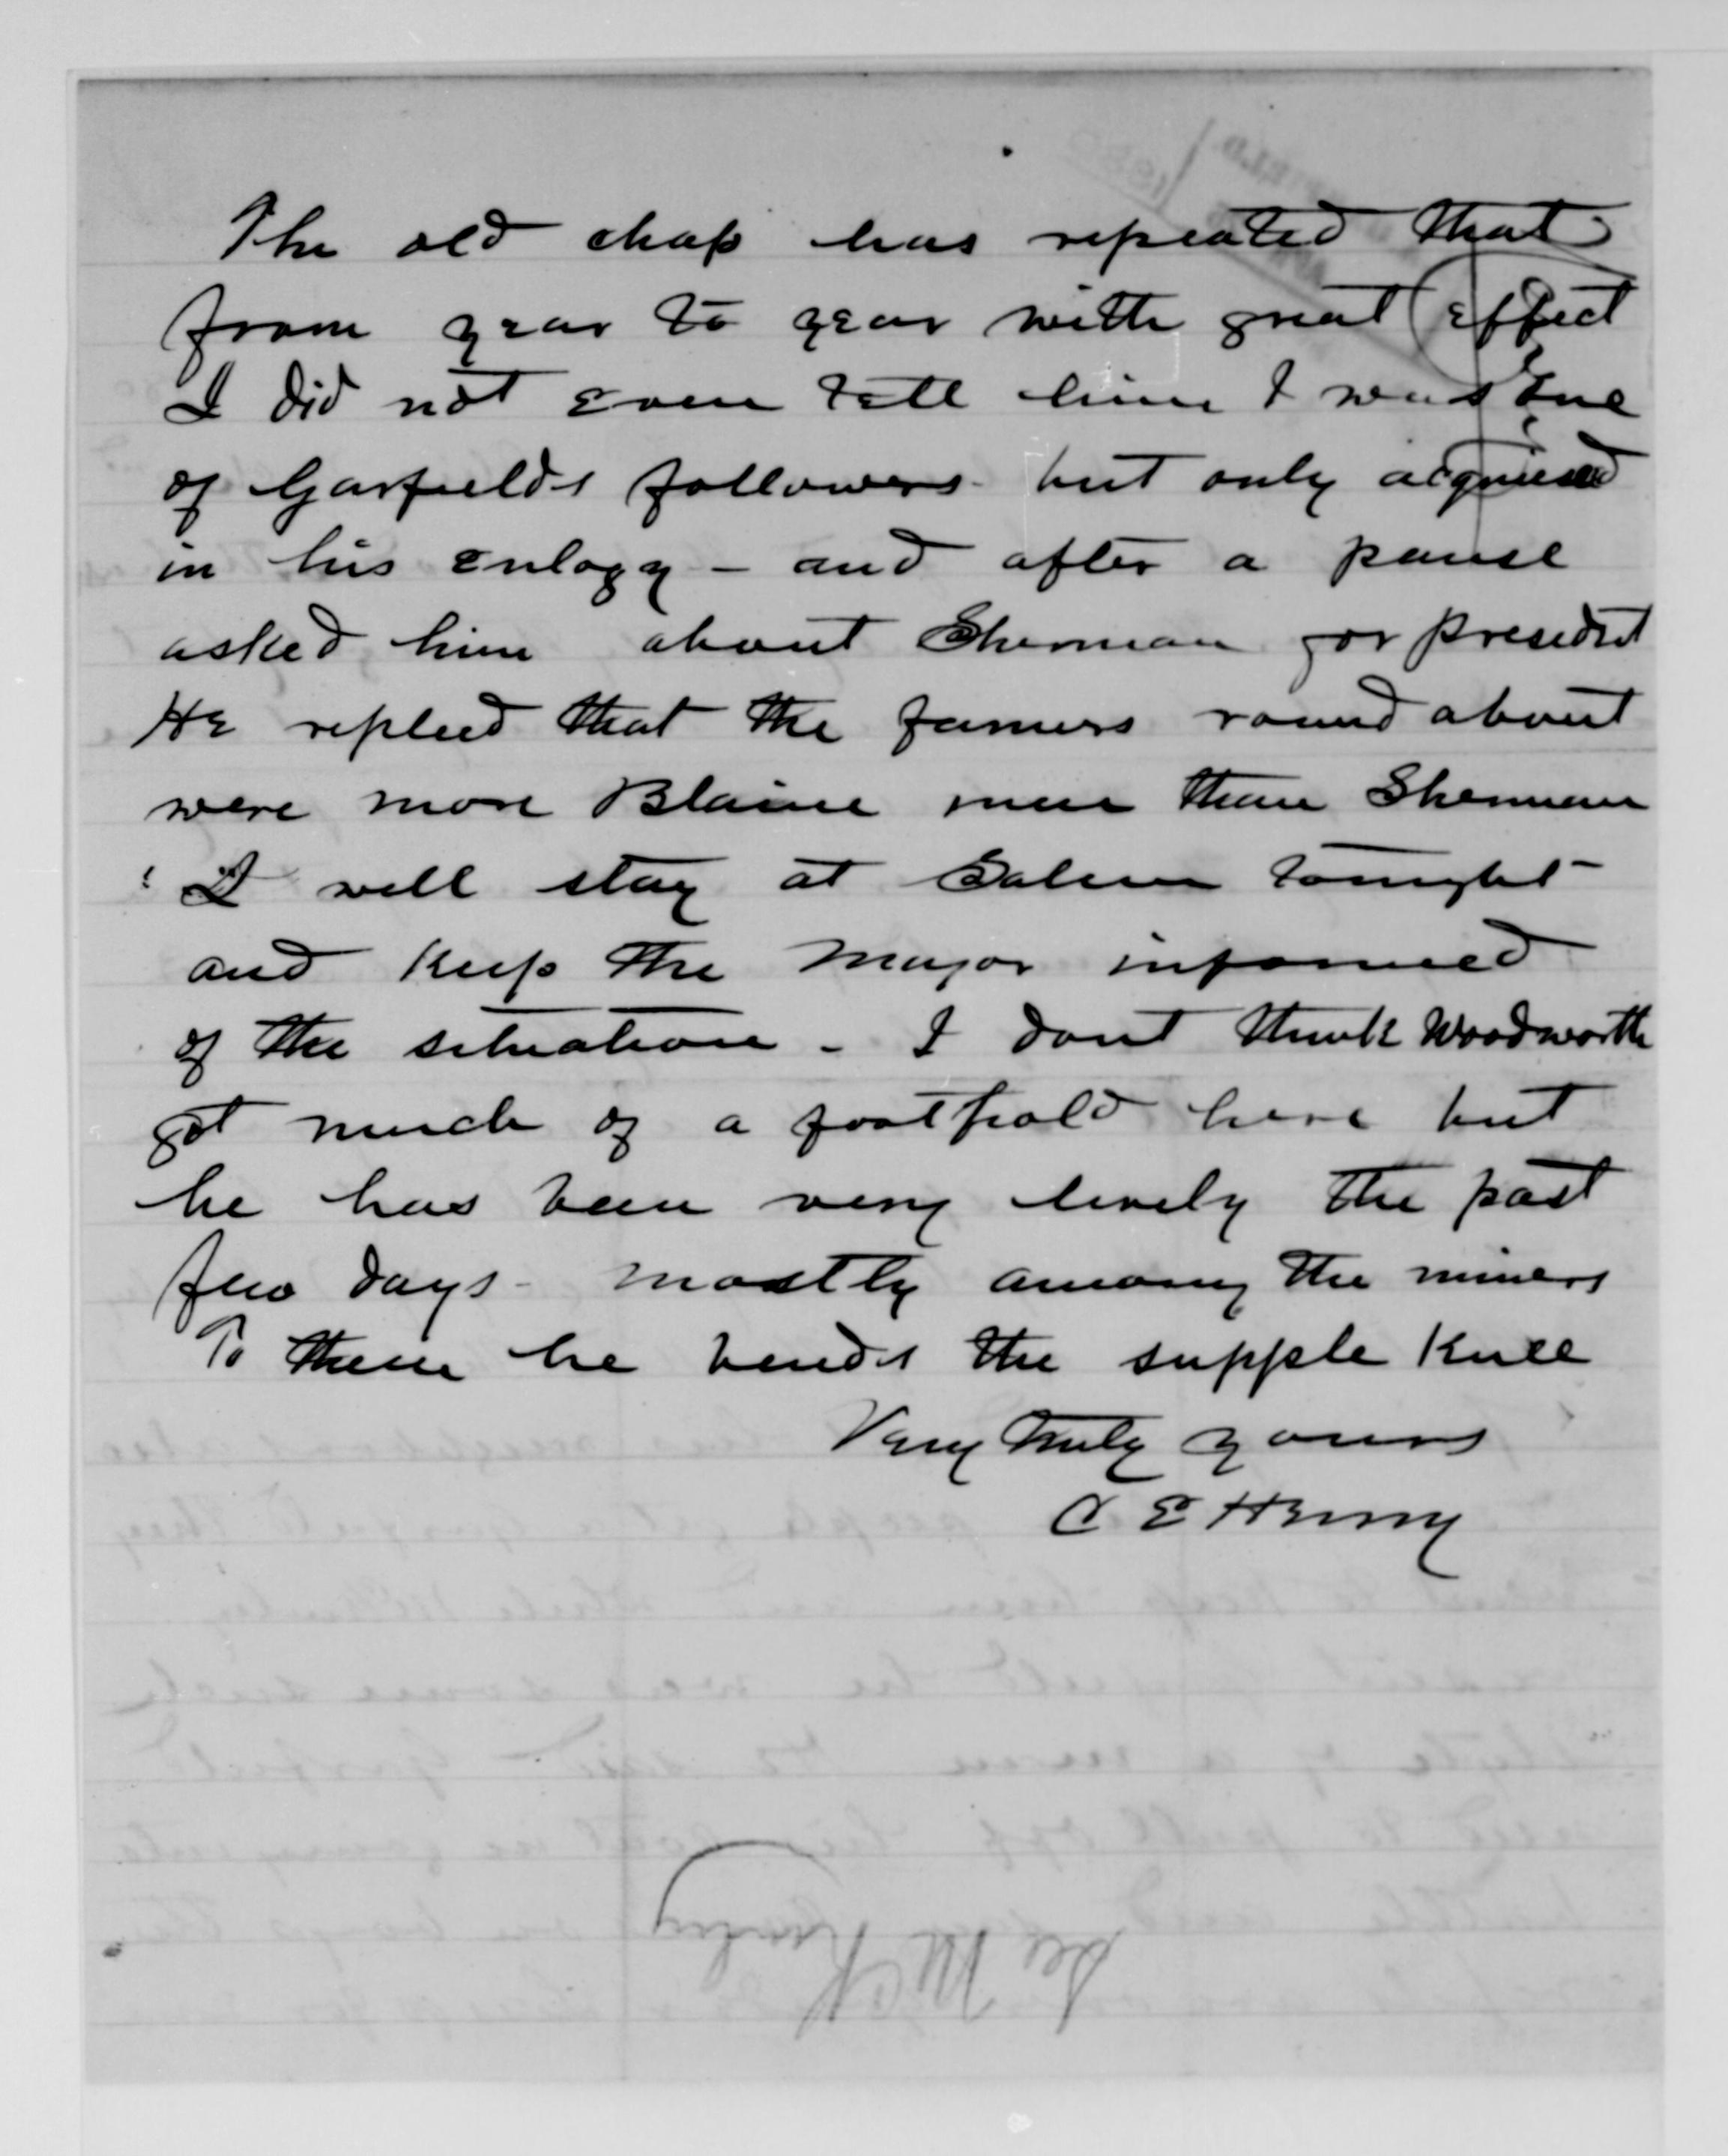 The old chap has repeated that
from year to year with great effect
I did not even tell him I was one
of Garfields followers but only acquiesed
in his eulogy - and after a pause
asked him about Sherman for presedent
He replied that the farmers round about
were more Blaine men than Sherman
I will stay at Salem tonight
and keep the Major informed
of the situation - I dont think Woodworth
got much of a foothold here but
he has been very lively the past
few days - mostly among the miners
To them he bends the supple knee
Very truly yours
C E Henry
McKinley